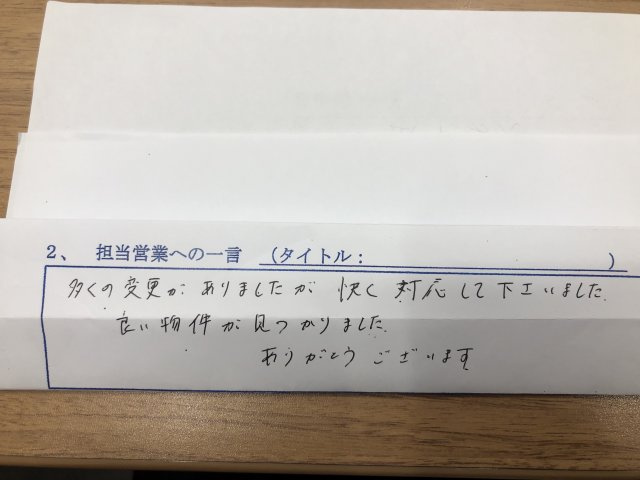 2、 担当営業への一言 (タイトル: )
多くの変更がありましたが 快く 対応して下さいました.
良い物件が見つかりました.
ありがとうございます